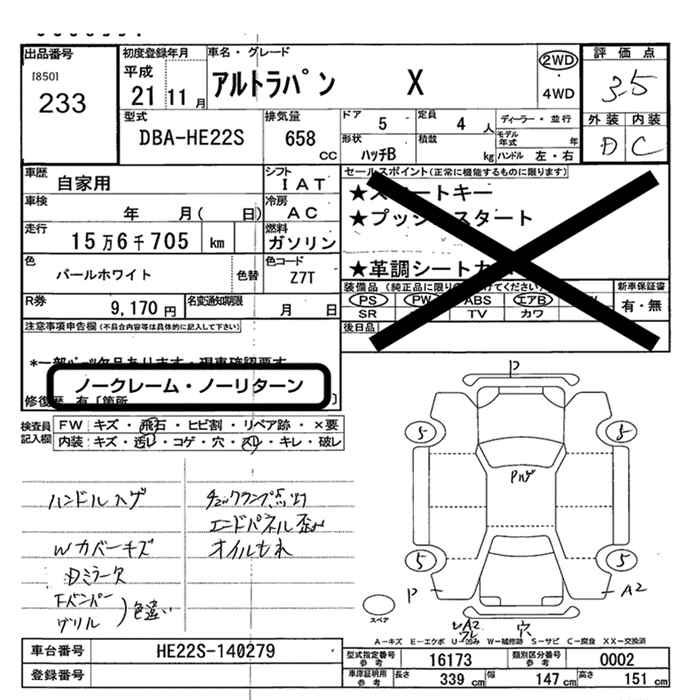 出品番号
[850]
233
初度登録年月
平成
21 11 月
車名・グレード
アルトラパン X
2WD
4WD
評価点
3.5
外装 内装
D C
型式
DBA-HE22S
排気量
658 CC
ドア
5
定員
4 人
形状
ハッチB
積載
kg
ディーラー・並行
モデル年式 年
ハンドル 左・右
車歴
自家用
シフト
IAT
車検
年 月( 日)
冷房
AC
走行
15万6千705 km
燃料
ガソリン
色
パールホワイト
色替
色コード
Z7T
R券
9,170 円
名変通知期限
月 日
セールスポイント(正常に機能するものに限ります)
★スマートキー
★プッシュスタート
★革調シートカバー
装備品(純正品に限り○を付けてください)
PS PW ABS エアB
SR TV カワ
新車保証書
有・無
後日品
注意事項申告欄(不具合内容等は具体的に記入して下さい)
*一部パーツ欠品あります・現車確認要す
ノークレーム・ノーリターン
修復歴 有〔箇所 〕
検査員記入欄
FW キズ・飛石・ヒビ割・リペア跡・×要
内装 キズ・汚レ・コゲ・穴・スレ・キレ・破レ
ハンドルハゲ
Wカバーキズ
Dミラー欠
Fバンパー
グリル
色違い
チェックランプ点灯
エンドパネル歪み
オイルもれ
P
5 5
Pハゲ
5 5
P A2
スペア
A2
穴
A−キズ E−エクボ U−凹み W−補修跡 S−サビ C−腐食 XX−交換済
車台番号
HE22S-140279
登録番号
型式指定番号 参考
16173
類別区分番号 参考
0002
車庫証明用 参考
長さ 339 cm
幅 147 cm
高さ 151 cm